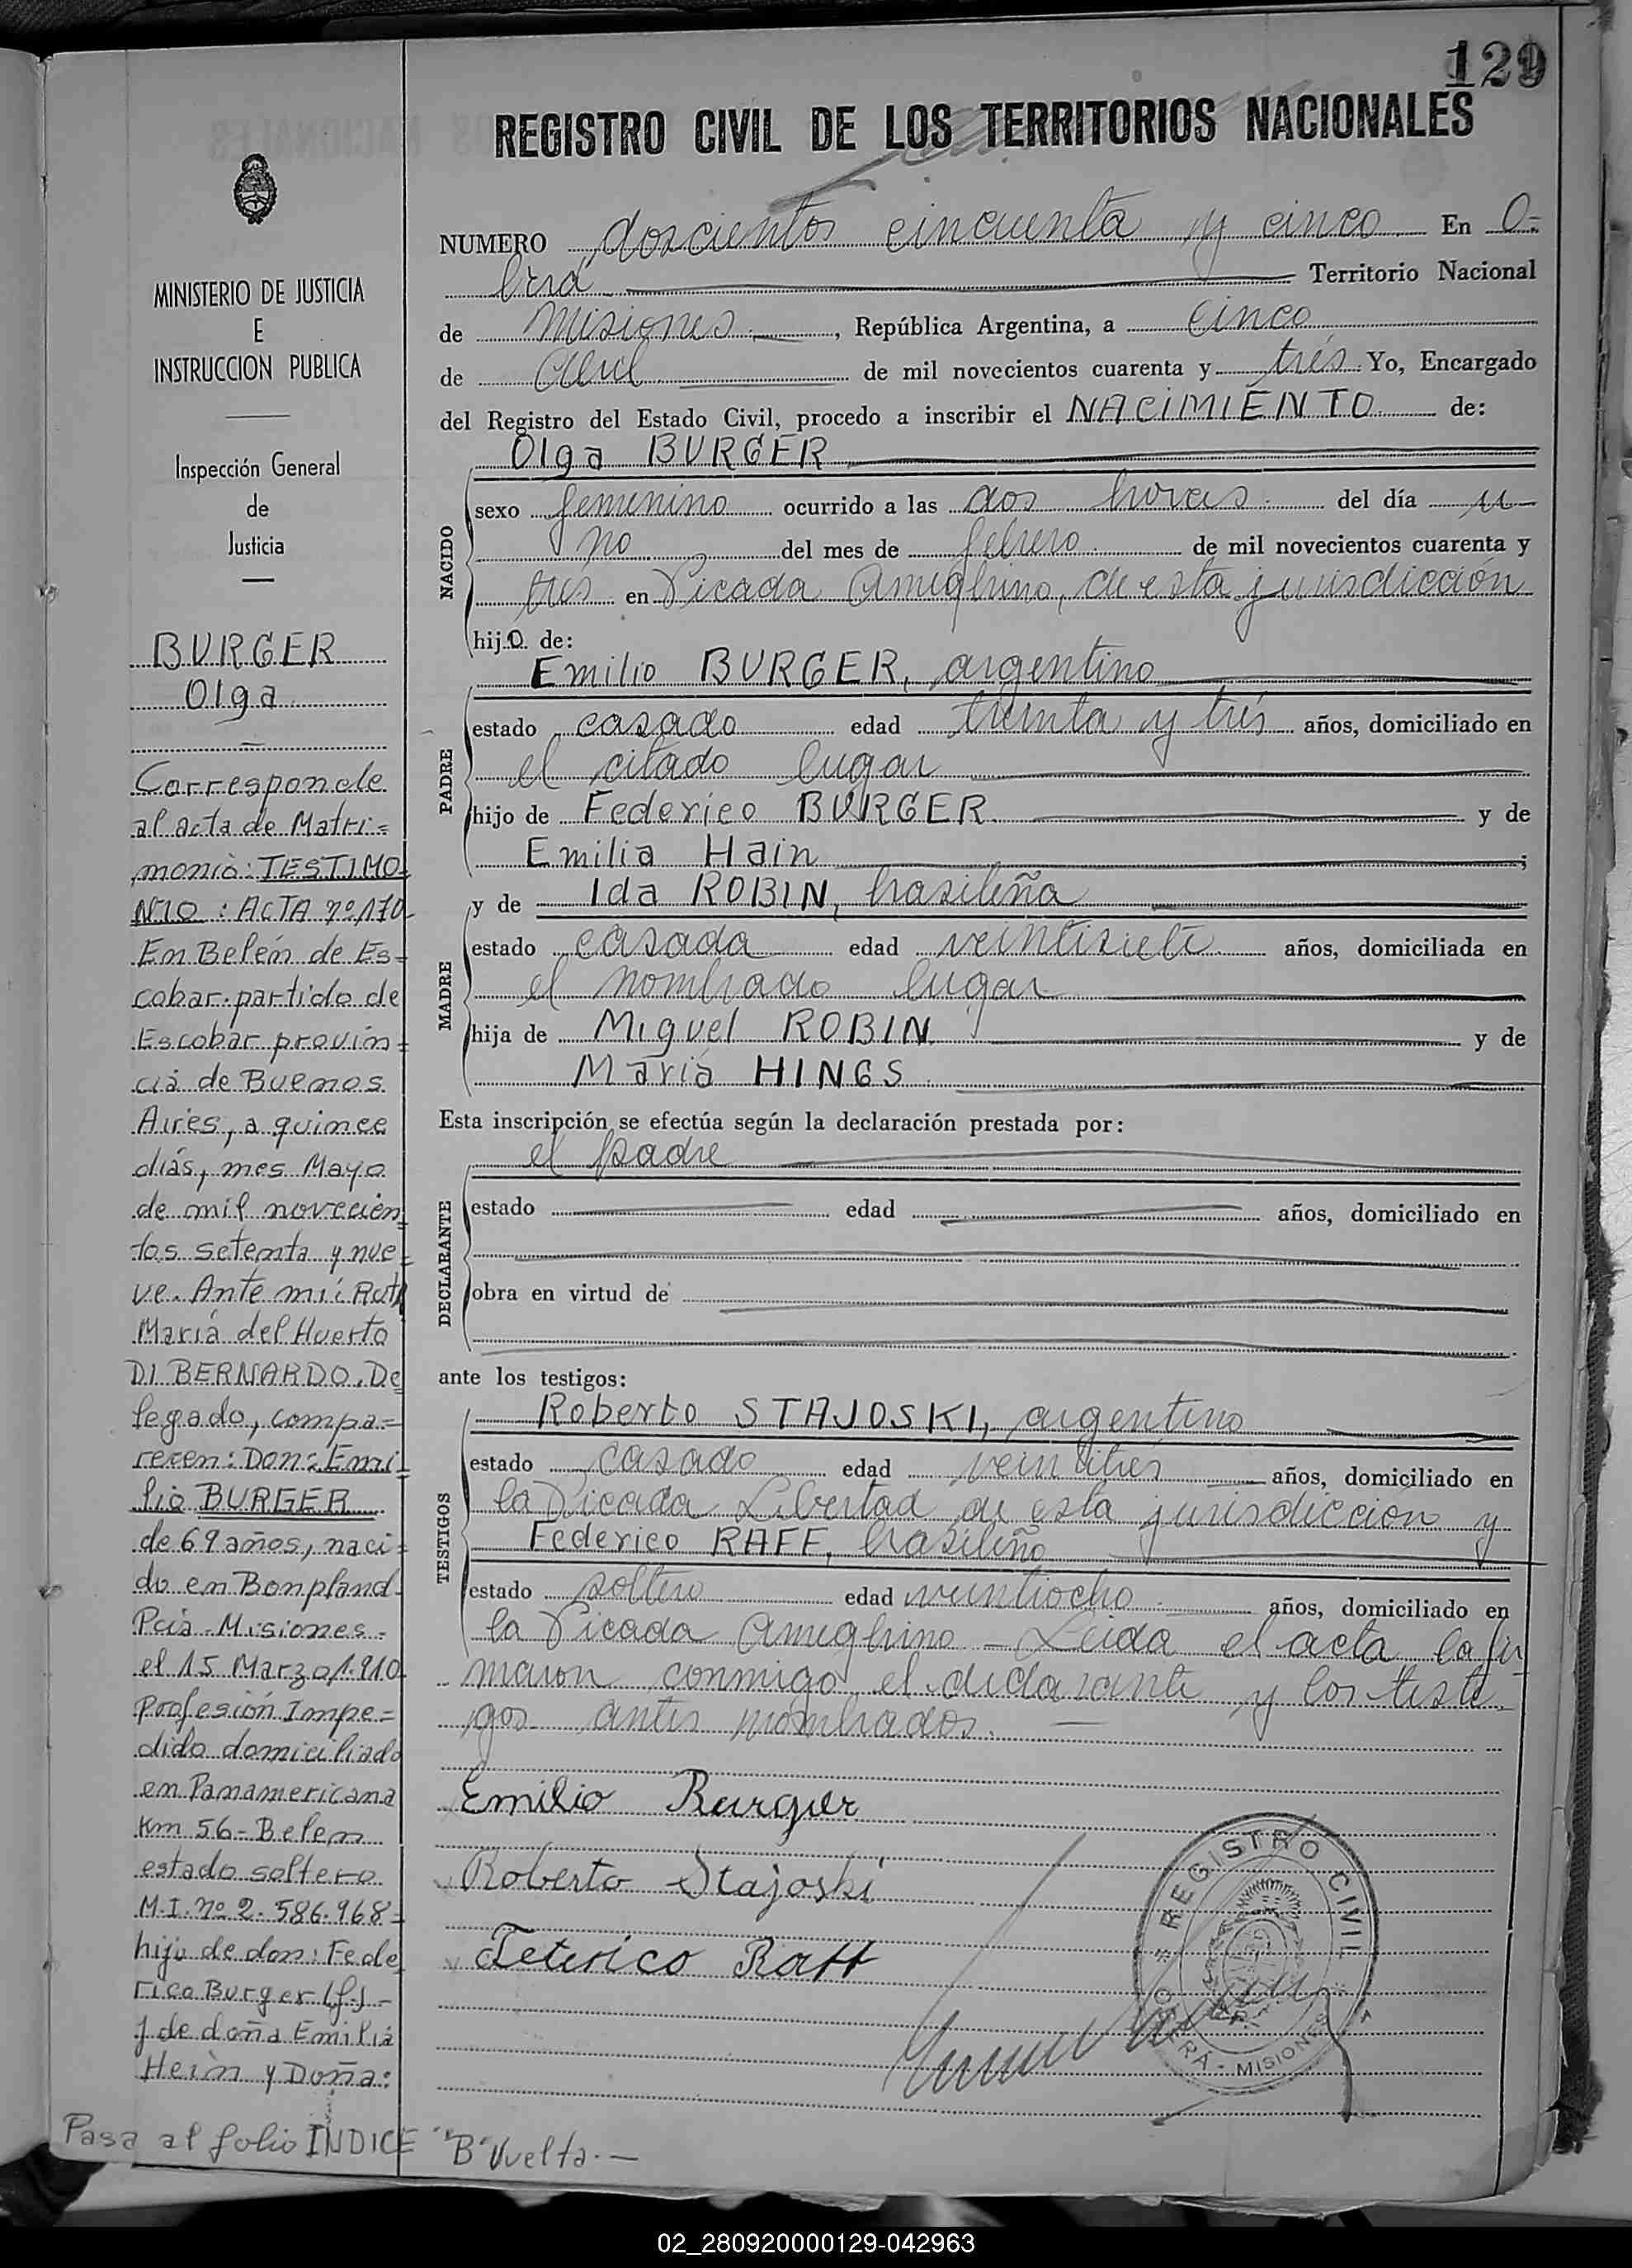 129
REGISTRO CIVIL DE LOS TERRITORIOS NACIONALES
MINISTERIO DE JUSTICIA
E
INSTRUCCION PUBLICA
Inspección General
de
Justicia
BURGER
Olga
Corresponde
al acta de Matri=
monio: TESTIMO
NIO: ACTA nº 170
En Belén de Es=
cobar partido de
Escobar provin=
cia de Buenos
Aires, a quince
días, mes Mayo
de mil novecien=
tos setenta y nue=
ve. Ante mí: Ruth
María del Huerto
DI BERNARDO, De
legado, compa=
recen: Don: Emi
lio BURGER
de 69 años, naci=
do en Bonpland
Pcia - Misiones -
el 15 Marzo, 1.910
Profesión Impe=
dido domiciliado
en Panamericana
Km 56 - Belem
estado soltero
M.I. nº 2.586.968=
hijo de don: Fede
rico Burger (f) -
y de doña Emilia
Hein y Doña:
Pasa al folio INDICE "B" Vuelta.—
NUMERO doscientos cincuenta y cinco En O-
berá Territorio Nacional
de Misiones, República Argentina, a cinco
de Abril de mil novecientos cuarenta y trés Yo, Encargado
del Registro del Estado Civil, procedo a inscribir el NACIMIENTO de:
Olga BURGER
NACIDO
sexo femenino ocurrido a las dos horas. del día u-
no del mes de febrero de mil novecientos cuarenta y
tres en Picada Ameghino, de esta jurisdicción
hijO de:
PADRE
Emilio BURGER, argentino
estado casado edad treinta y trés años, domiciliado en
el citado lugar
hijo de Federico BURGER y de
Emilia Hain;
MADRE
y de Ida ROBIN, brasileña
estado casada edad veintisiete años, domiciliada en
el nombrado lugar
hija de Miguel ROBIN y de
María HINGS
Esta inscripción se efectúa según la declaración prestada por:
DECLARANTE
el padre
estado edad años, domiciliado en
obra en virtud de
ante los testigos:
TESTIGOS
Roberto STAJOSKI, argentino
estado casado edad veintitrés años, domiciliado en
la Picada Libertad de esta jurisdicción y
Federico RAFF, brasileño
estado soltero edad veintiocho años, domiciliado en
la Picada Ameghino - Leida el acta la fir
maron conmigo el declarante y los testi
gos antes nombrados. —
Emilio Burger
Roberto Stajoski
Feterico Raff
REGISTRO CIVIL
OBERÁ - MISIONES
02_280920000129-042963